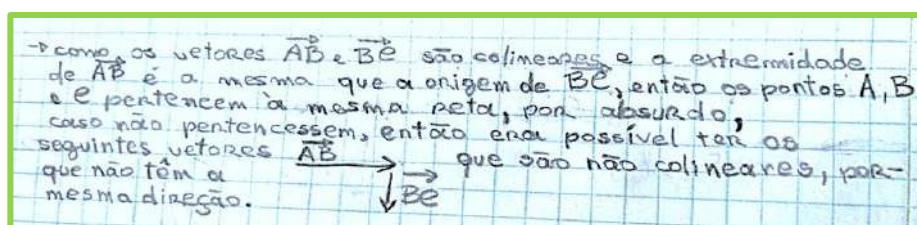 → como os vetores AB e BC são colineares e a extremidade
de AB é a mesma que a origem de BC, então os pontos A, B
e C pertencem à mesma reta, por absurdo,
caso não pertencessem, então era possível ter os
seguintes vetores AB que são não colineares, por-
que não têm a BC
mesma direção.